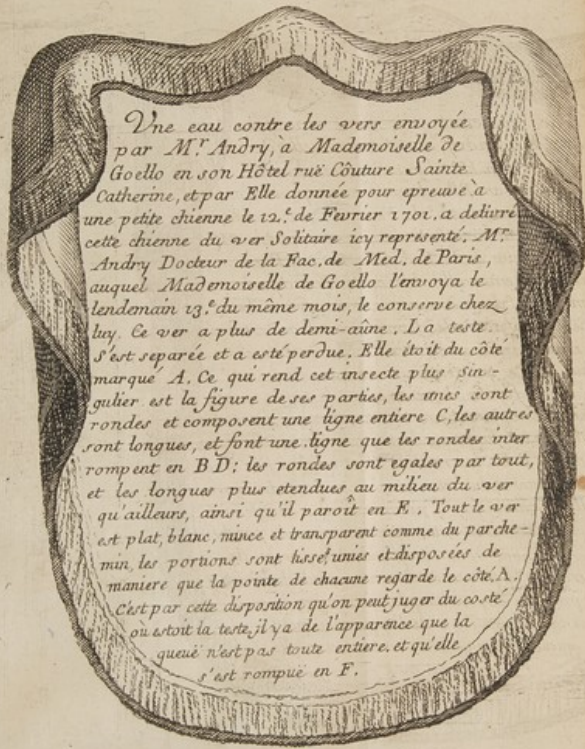 Une eau contre les vers envoyée
par M.r Andry, à Mademoiselle de
Goello en son Hôtel ruë Côuture Sainte
Catherine, et par Elle donnée pour epreuve à
une petite chienne le 12.e de Fevrier 1701. a delivré
cette chienne du ver Solitaire icy representé. M.r
Andry Docteur de la Fac. de Med. de Paris,
auquel Mademoiselle de Goello l'envoya le
lendemain 13.e du même mois, le conserve chez
luy. Ce ver a plus de demi-aûne. La teste
s'est separée et a esté perdue. Elle étoit du côté
marqué A. Ce qui rend cet insecte plus sin-
gulier est la figure de ses parties, les unes sont
rondes et composent une ligne entiere C, les autres
sont longues, et font une ligne que les rondes inter
rompent en B D; les rondes sont egales par tout,
et les longues plus etendues au milieu du ver
qu'ailleurs, ainsi qu'il paroît en E. Tout le ver
est plat, blanc, mince et transparent comme du parche-
min, les portions sont lisses, unies et disposées de
maniere que la pointe de chacune regarde le côté A.
C'est par cette disposition qu'on peut juger du costé
où estoit la teste, il y a de l'apparence que la
queuë n'est pas toute entiere, et qu'elle
s'est rompuë en F.